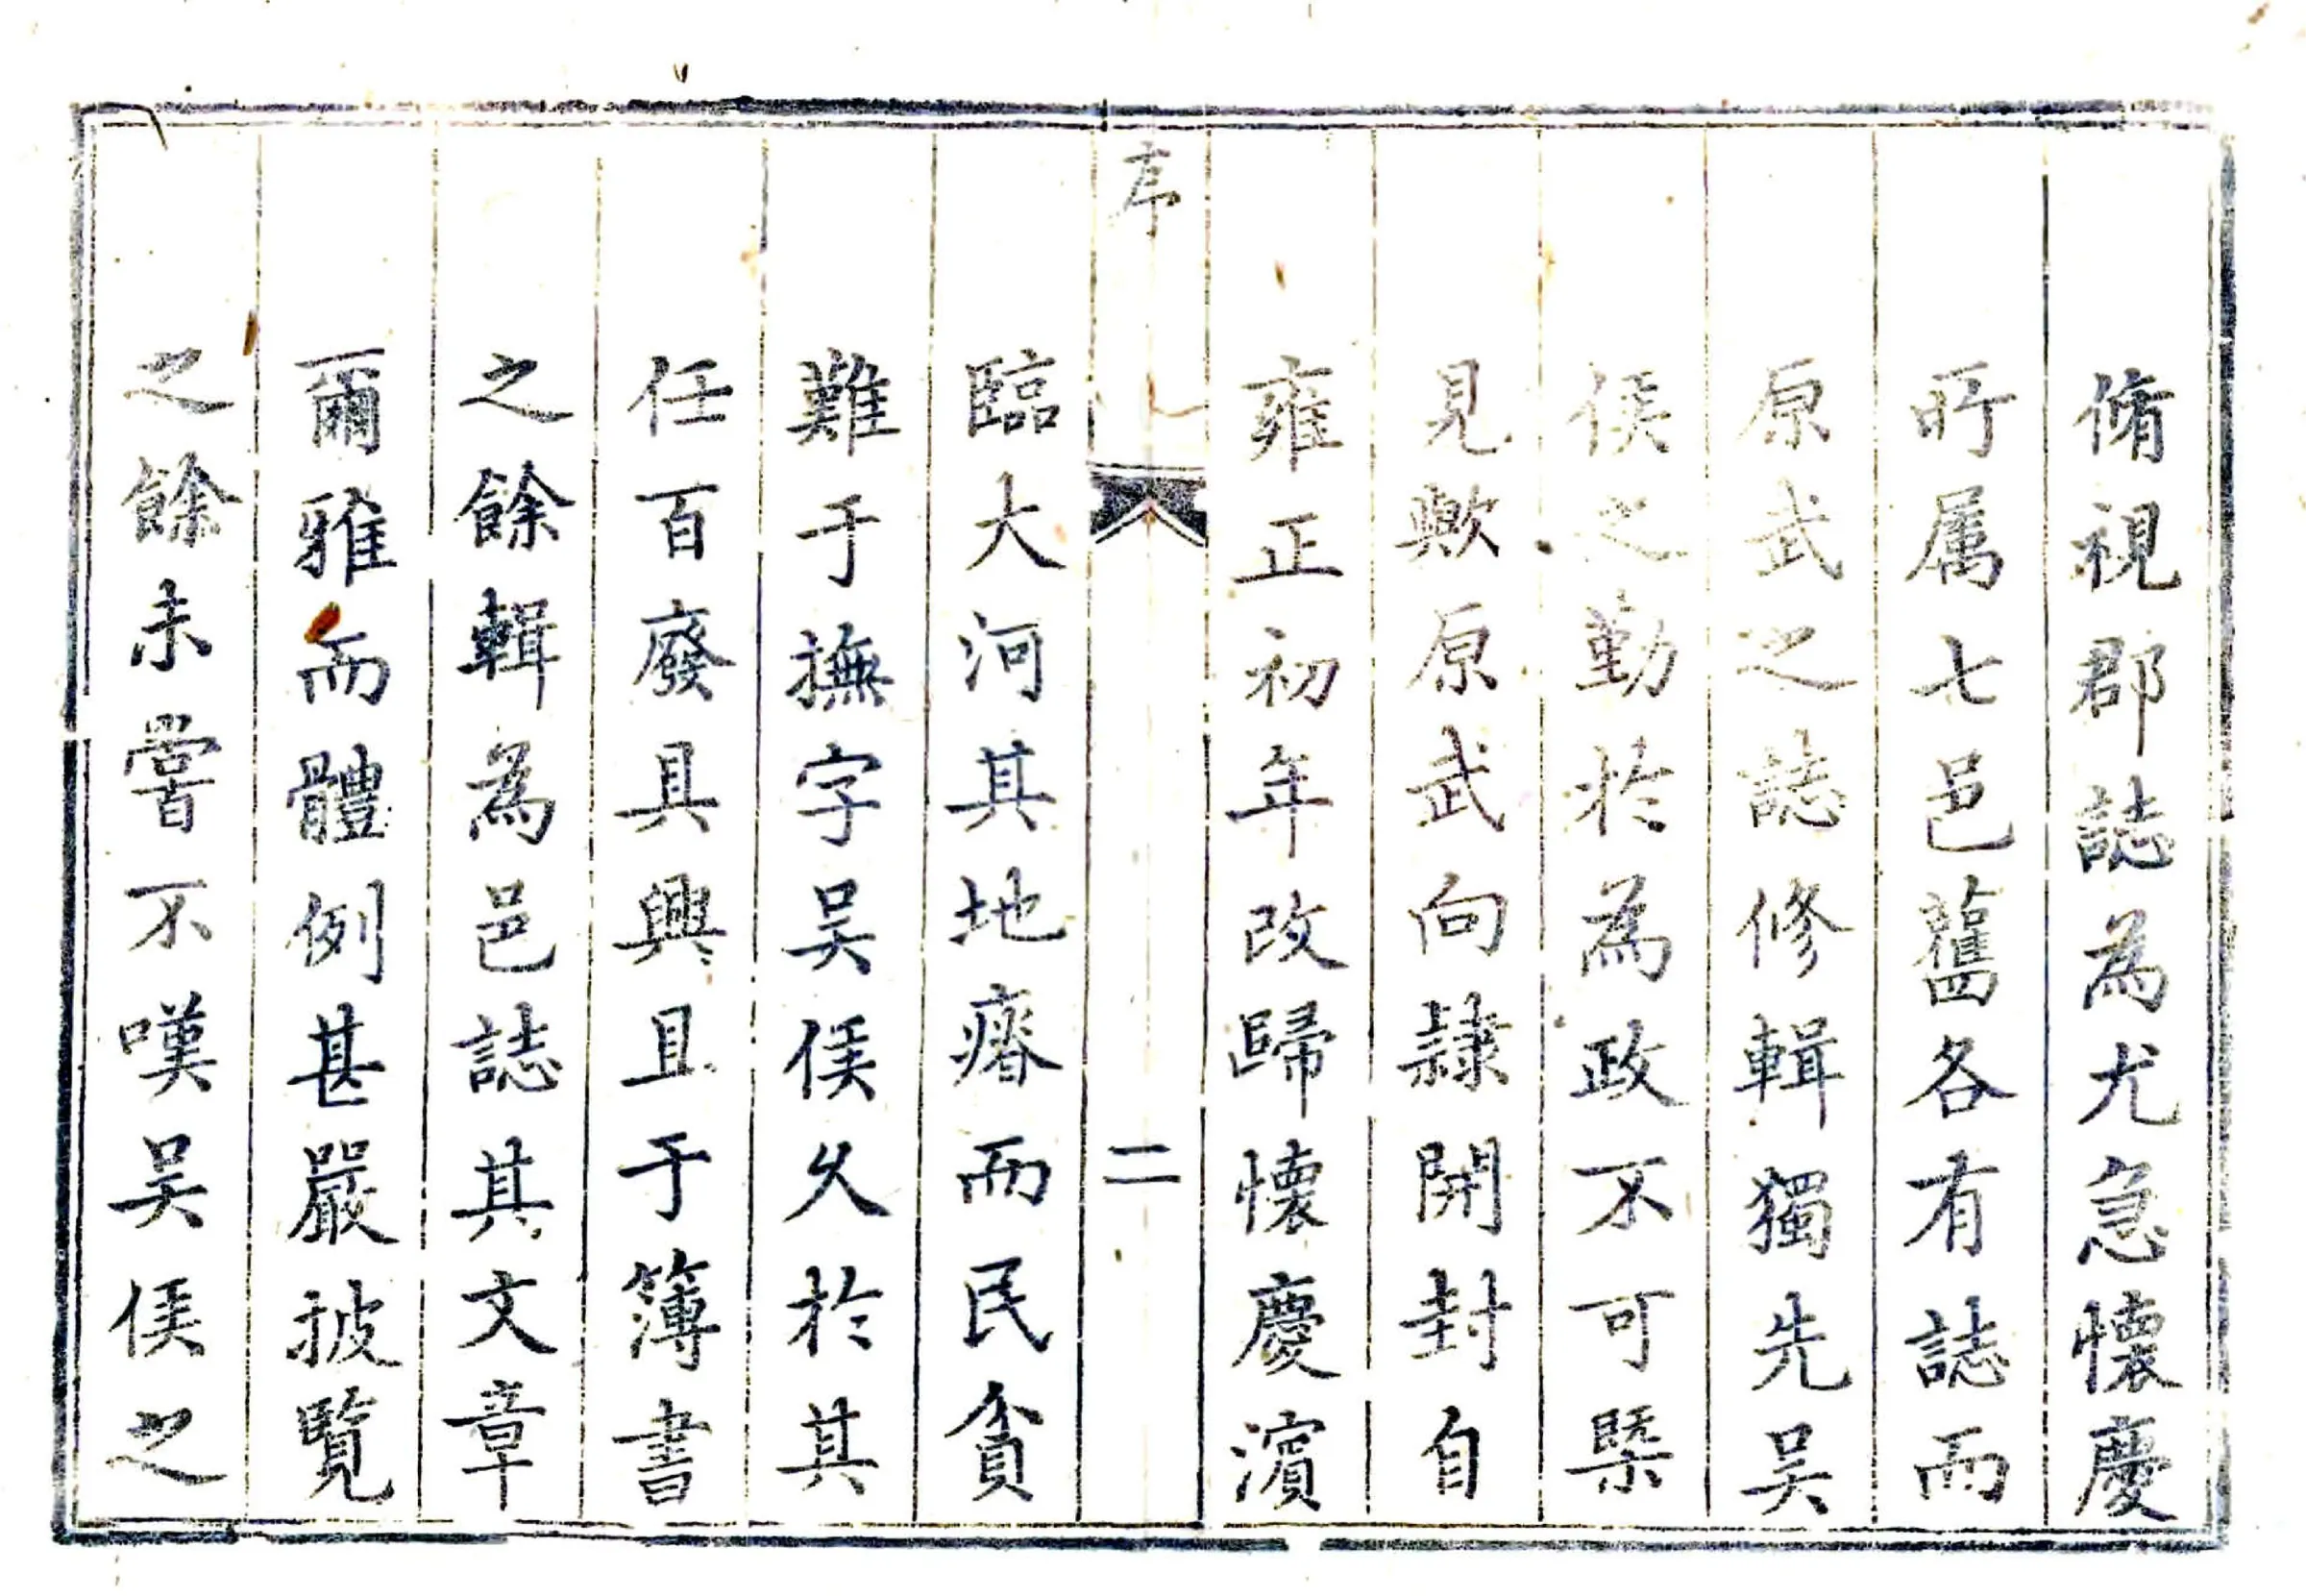 脩視郡誌為尤急懷慶
所属七邑舊各有誌而
原武之誌修輯獨先吴
侯之勤於為政不可槩
見歟原武向隷開封自
雍正初年改歸懷慶濵
序
二
臨大河其地瘠而民貧
難于撫字吴侯久於其
任百廢具興且于簿書
之餘輯為邑誌其文章
爾雅而體例甚嚴披覧
之餘未嘗不嘆吴侯之